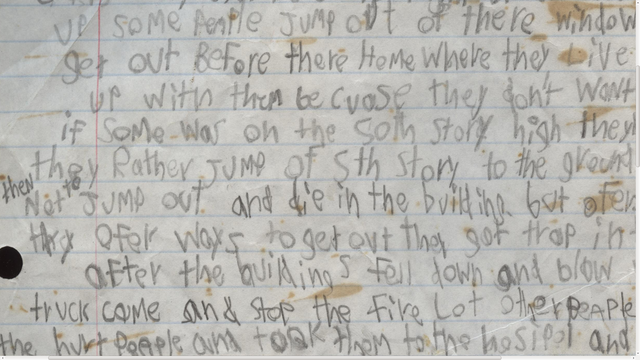 up some People Jump out of there window
get out Before there Home where they Live
up with them be cuase they don't want
if some was on the 50th story high they
they Rather JUMP of 5th story to the ground
then Not to JUMP out and die in the building but ofer
thry ofer ways to get out they got trap in
after the building's fell down and blow
truck came and stop the fire Lot other people
the hurt People and took them to the hosipel and